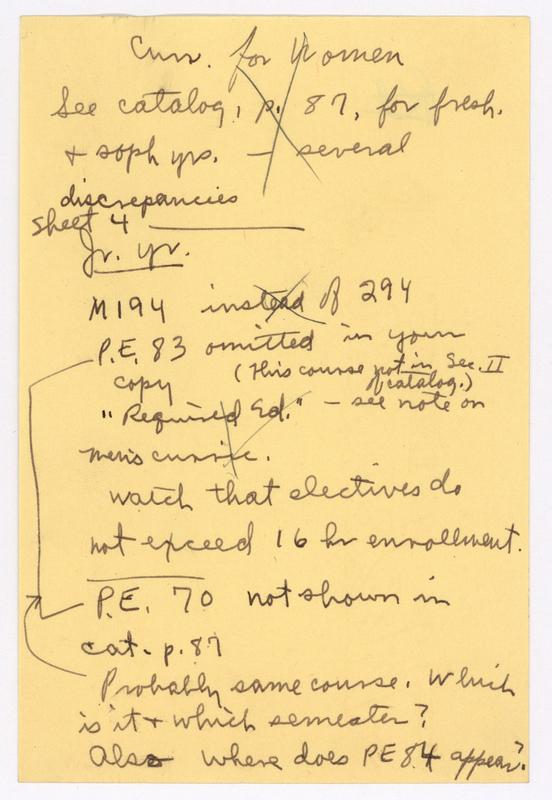 Curr. for Women
See catalog, p. 87, for fresh.
+ soph yrs. — several
discrepancies
Sheet 4
Jr. yr.
M194 instead of 294
P.E. 83 omitted in your
copy (This course not in Sec. II
of catalog.)
"Required Ed." - see note on
men's curric.
watch that electives do
not exceed 16 hr enrollment.
P.E. 70 not shown in
cat. p. 87
Probably same course. Which
is it + which semester?
Also where does PE 84 appear?